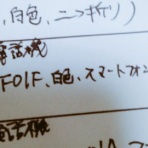 、白色、二つ折り)
電話機
FOIF、白色、スマートフォン
電話機